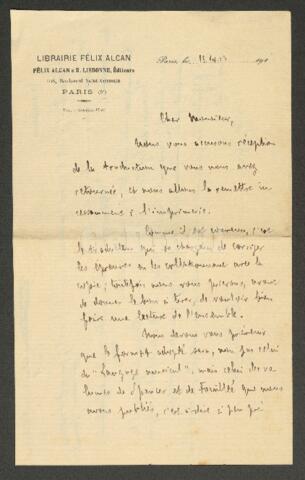 LIBRAIRIE FÉLIX ALCAN
FÉLIX ALCAN & R. LISBONNE, Éditeurs
108, Boulevard Saint-Germain
PARIS (6e)
Paris, le 191
Cher Monsieur,
Nous vous accusons réception
de la traduction que vous nous avez
retournée, et nous allons la remettre
incessamment à l'imprimerie.
Comme il est convenu, c'est
le traducteur qui se chargera de corriger
les épreuves en les collationnant avec la
copie; toutefois nous vous prierons, avant
de donner le bon à tirer, de vouloir bien
faire une lecture de l'ensemble.
Nous devons vous préciser
que le format adopté sera, non pas celui
du "Langage musical", mais celui des vo-
lumes de Spencer et de que nous
avons publiés, c'est-à-dire à peu près